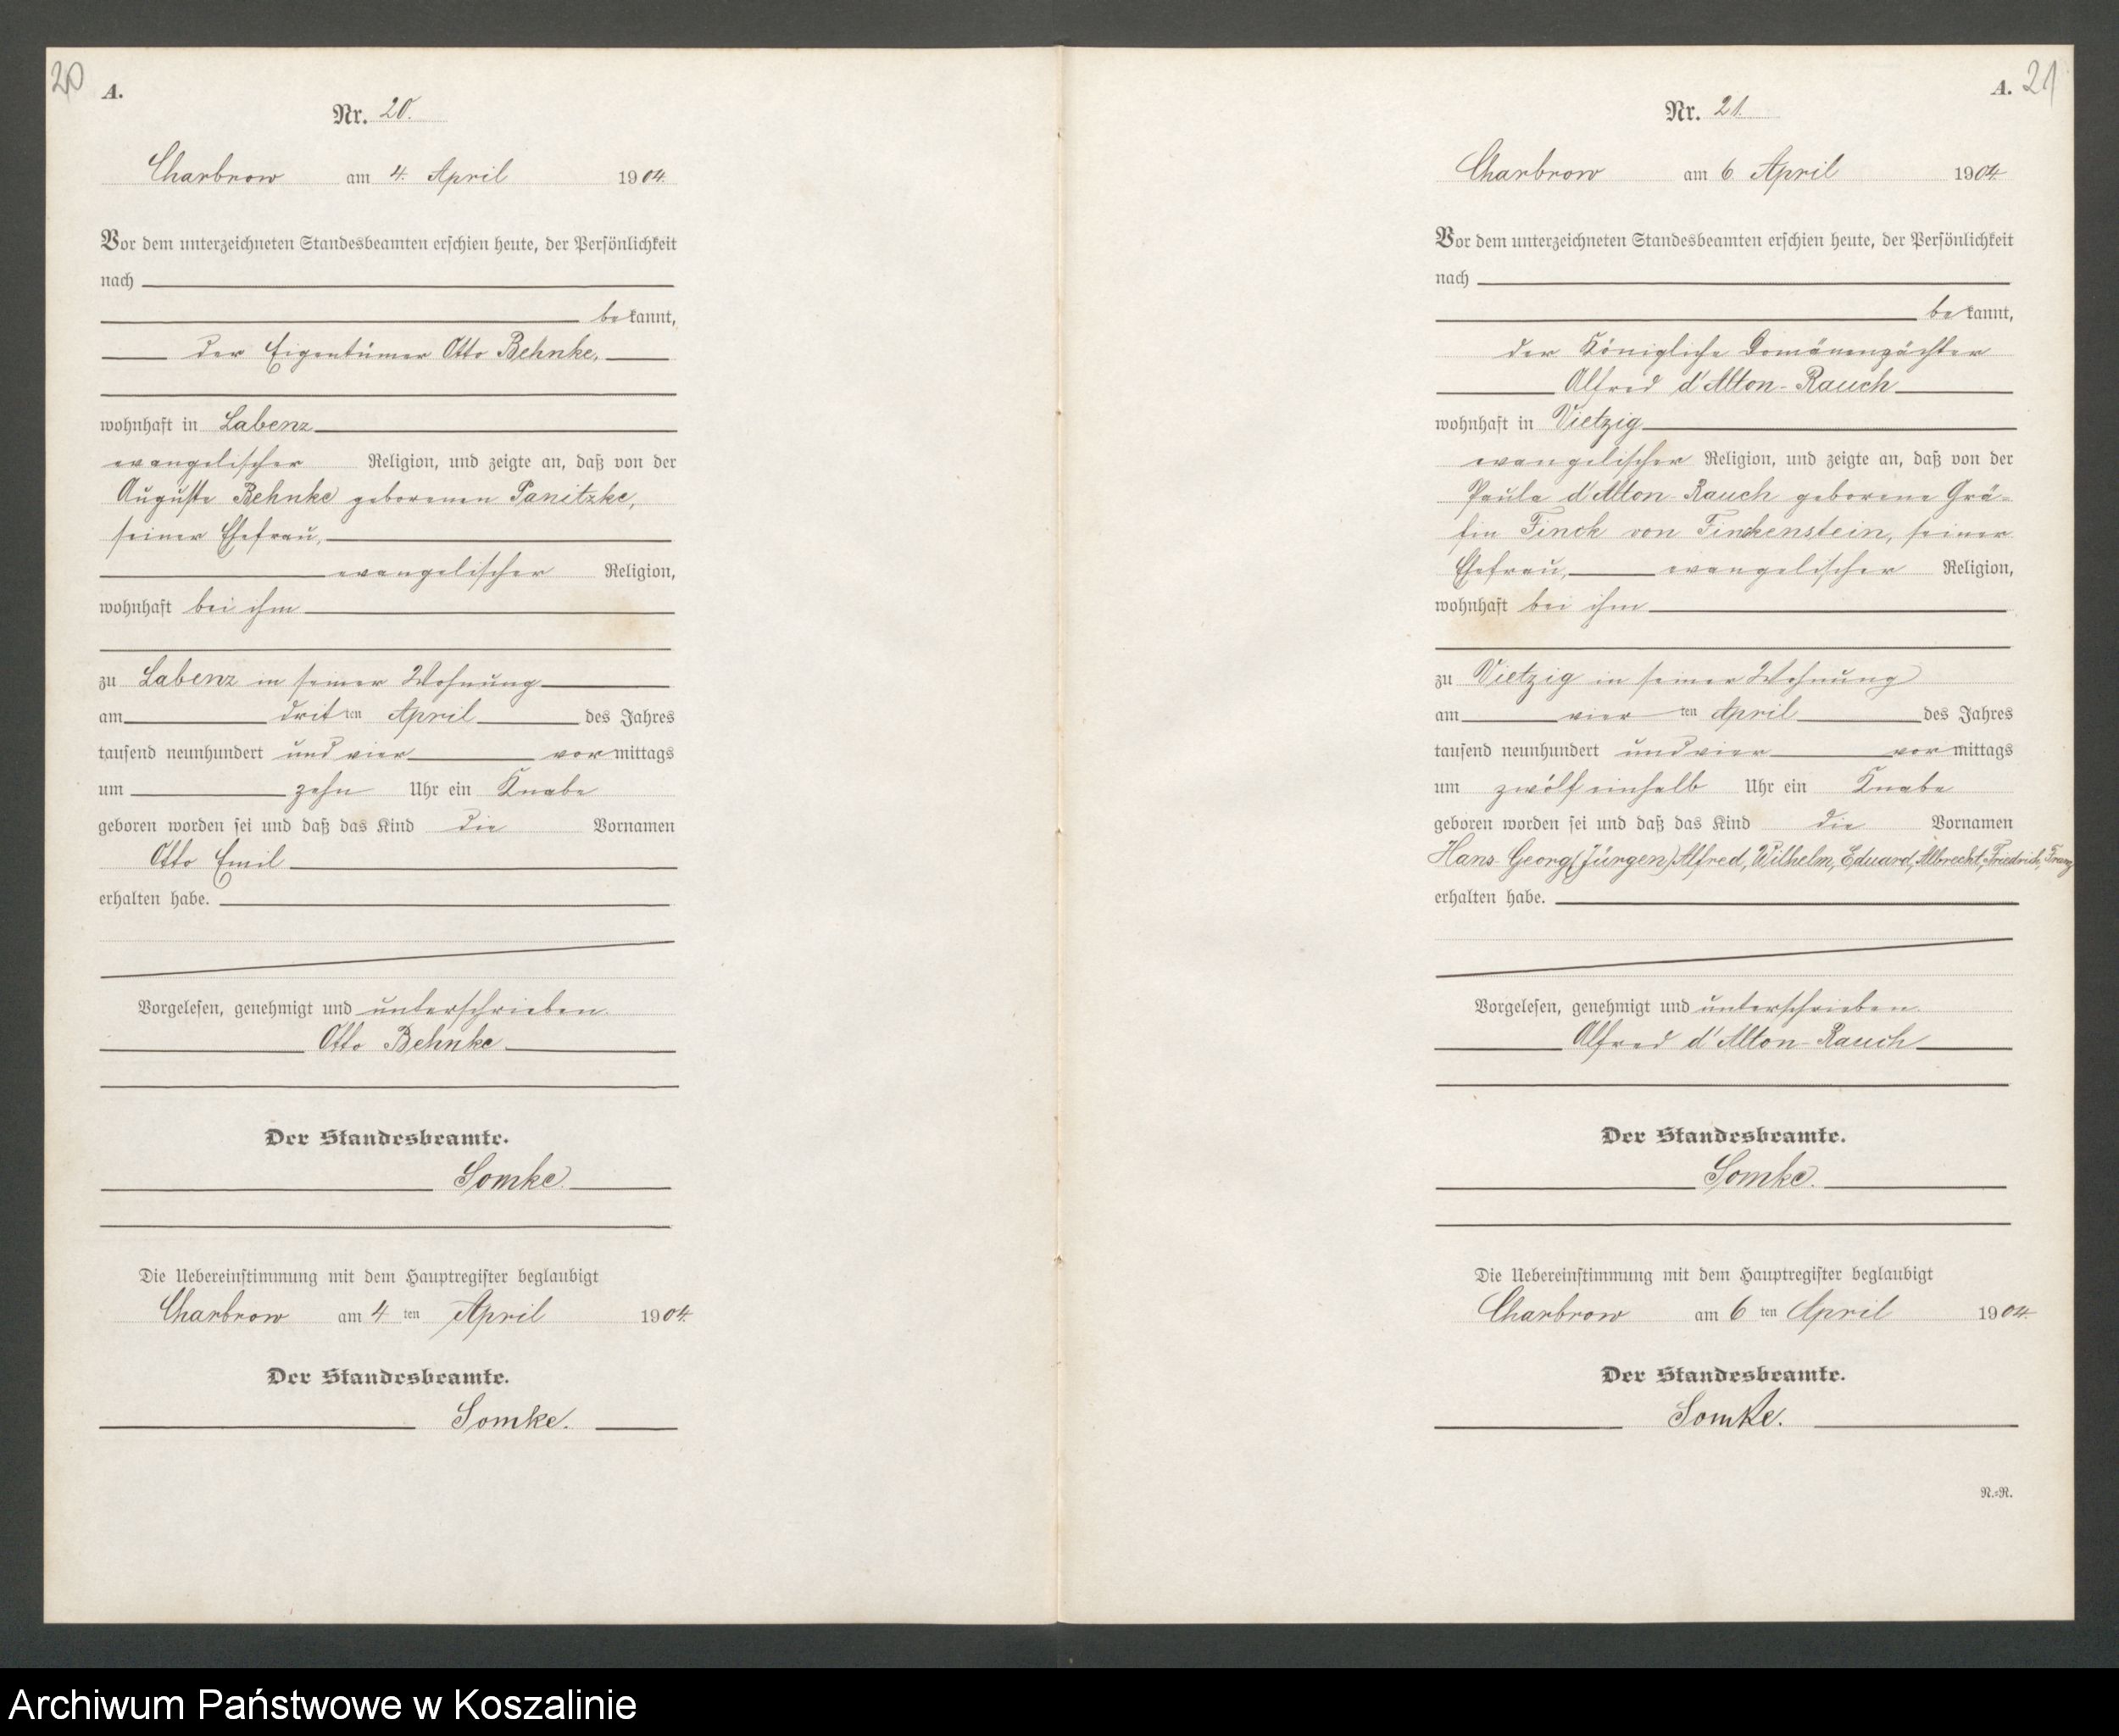 20
A.
Nr. 20.
Charbrow am 4. April 1904.
Vor dem unterzeichneten Standesbeamten erschien heute, der Persönlichkeit
nach
bekannt,
der Eigentümer Otto Behnke,
wohnhaft in Labenz
evangelischer Religion, und zeigte an, daß von der
Auguste Behnke geborenen Panitzke,
seiner Ehefrau,
evangelischer Religion,
wohnhaft bei ihm
zu Labenz in seiner Wohnung
am dritten April des Jahres
tausend neunhundert und vier vormittags
um zehn Uhr ein Knabe
geboren worden sei und daß das Kind die Vornamen
Otto Emil
erhalten habe.
Vorgelesen, genehmigt und unterschrieben.
Otto Behnke
Der Standesbeamte.
Somke.
Die Uebereinstimmung mit dem Hauptregister beglaubigt
Charbrow am 4 ten April 1904.
Der Standesbeamte.
Somke.
A. 21
Nr. 21.
Charbrow am 6 April 1904.
Vor dem unterzeichneten Standesbeamten erschien heute, der Persönlichkeit
nach
bekannt,
der Königliche Domänenpächter
Alfred d'Alton-Rauch
wohnhaft in Vietzig
evangelischer Religion, und zeigte an, daß von der
Paula d'Alton-Rauch geborene Grä-
fin Finck von Finckenstein, seiner
Ehefrau, evangelischer Religion,
wohnhaft bei ihm
zu Vietzig in seiner Wohnung
am vierten April des Jahres
tausend neunhundert und vier vormittags
um zwölf einhalb Uhr ein Knabe
geboren worden sei und daß das Kind die Vornamen
Hans-Georg (Jürgen) Alfred, Wilhelm, Eduard, Albrecht, Friedrich, Franz
erhalten habe.
Vorgelesen, genehmigt und unterschrieben.
Alfred d'Alton-Rauch
Der Standesbeamte.
Somke.
Die Uebereinstimmung mit dem Hauptregister beglaubigt
Charbrow am 6 ten April 1904.
Der Standesbeamte.
Somke.
N.=R.
Archiwum Państwowe w Koszalinie